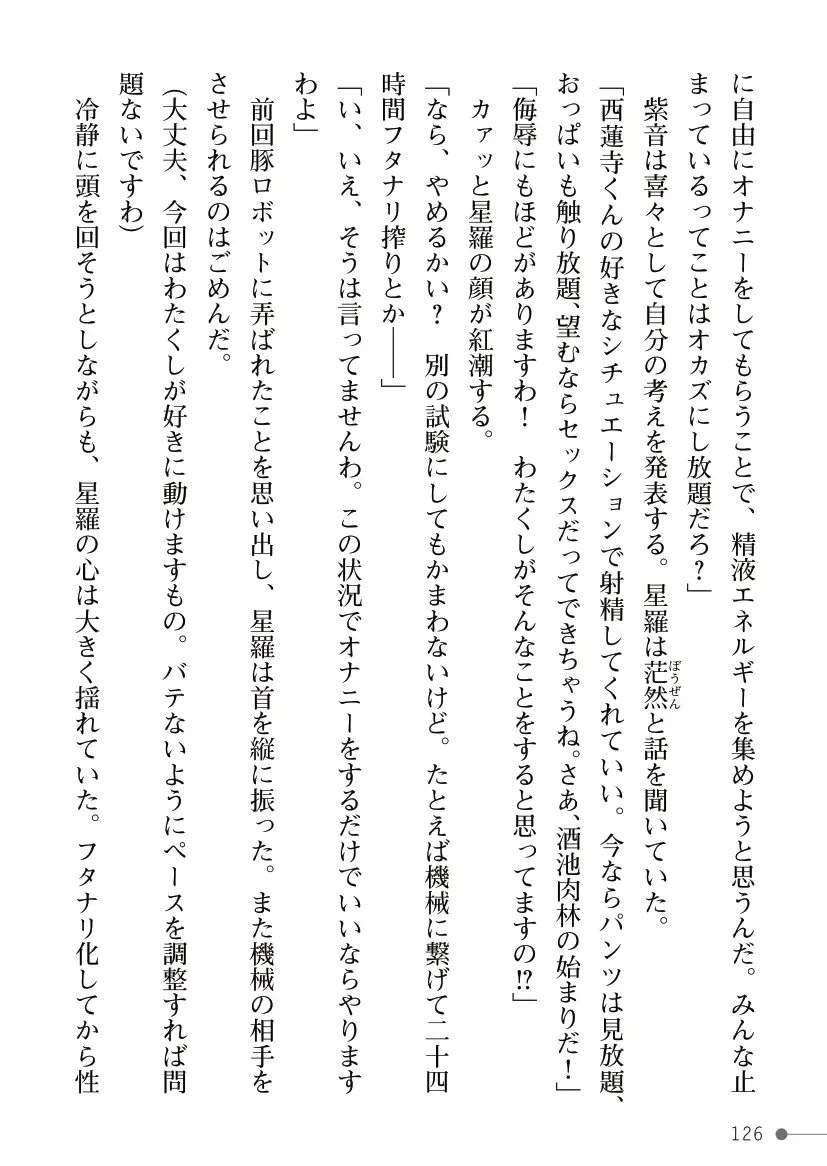 に自由にオナニーをしてもらうことで、精液エネルギーを集めようと思うんだ。みんな止
まっているってことはオカズにし放題だろ？」
　紫音は喜々として自分の考えを発表する。星羅は茫然と話を聞いていた。
ぼうぜん
「西蓮寺くんの好きなシチュエーションで射精してくれていい。今ならパンツは見放題、
おっぱいも触り放題、望むならセックスだってできちゃうね。さあ、酒池肉林の始まりだ！」
「侮辱にもほどがありますわ！　わたくしがそんなことをすると思ってますの!?」
　カァッと星羅の顔が紅潮する。
「なら、やめるかい？　別の試験にしてもかまわないけど。たとえば機械に繋げて二十四
時間フタナリ搾りとか――」
「い、いえ、そうは言ってませんわ。この状況でオナニーをするだけでいいならやります
わよ」
　前回豚ロボットに弄ばれたことを思い出し、星羅は首を縦に振った。また機械の相手を
させられるのはごめんだ。
（大丈夫、今回はわたくしが好きに動けますもの。バテないようにペースを調整すれば問
題ないですわ）
　冷静に頭を回そうとしながらも、星羅の心は大きく揺れていた。フタナリ化してから性
126